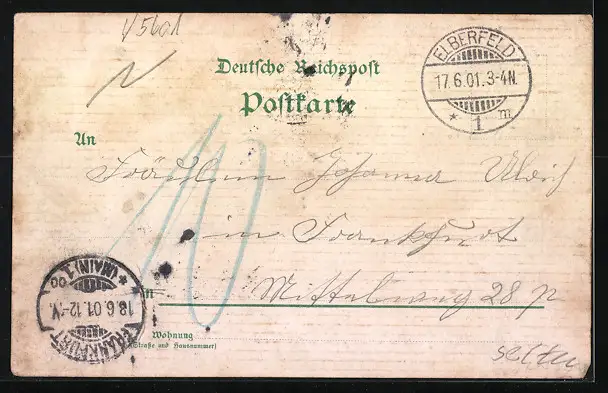 V5601
Deutsche Reichspost
Postkarte
ELBERFELD
17.6.01.3-4N.
* 1 m
An
Fräulein Johanna Ulrich
in Frankfurt
Mittelweg 28 p
10
FRANKFURT
18.6.01.12-1V.
* (MAIN) 1.
Wohnung
(Straße und Hausnummer)
selten